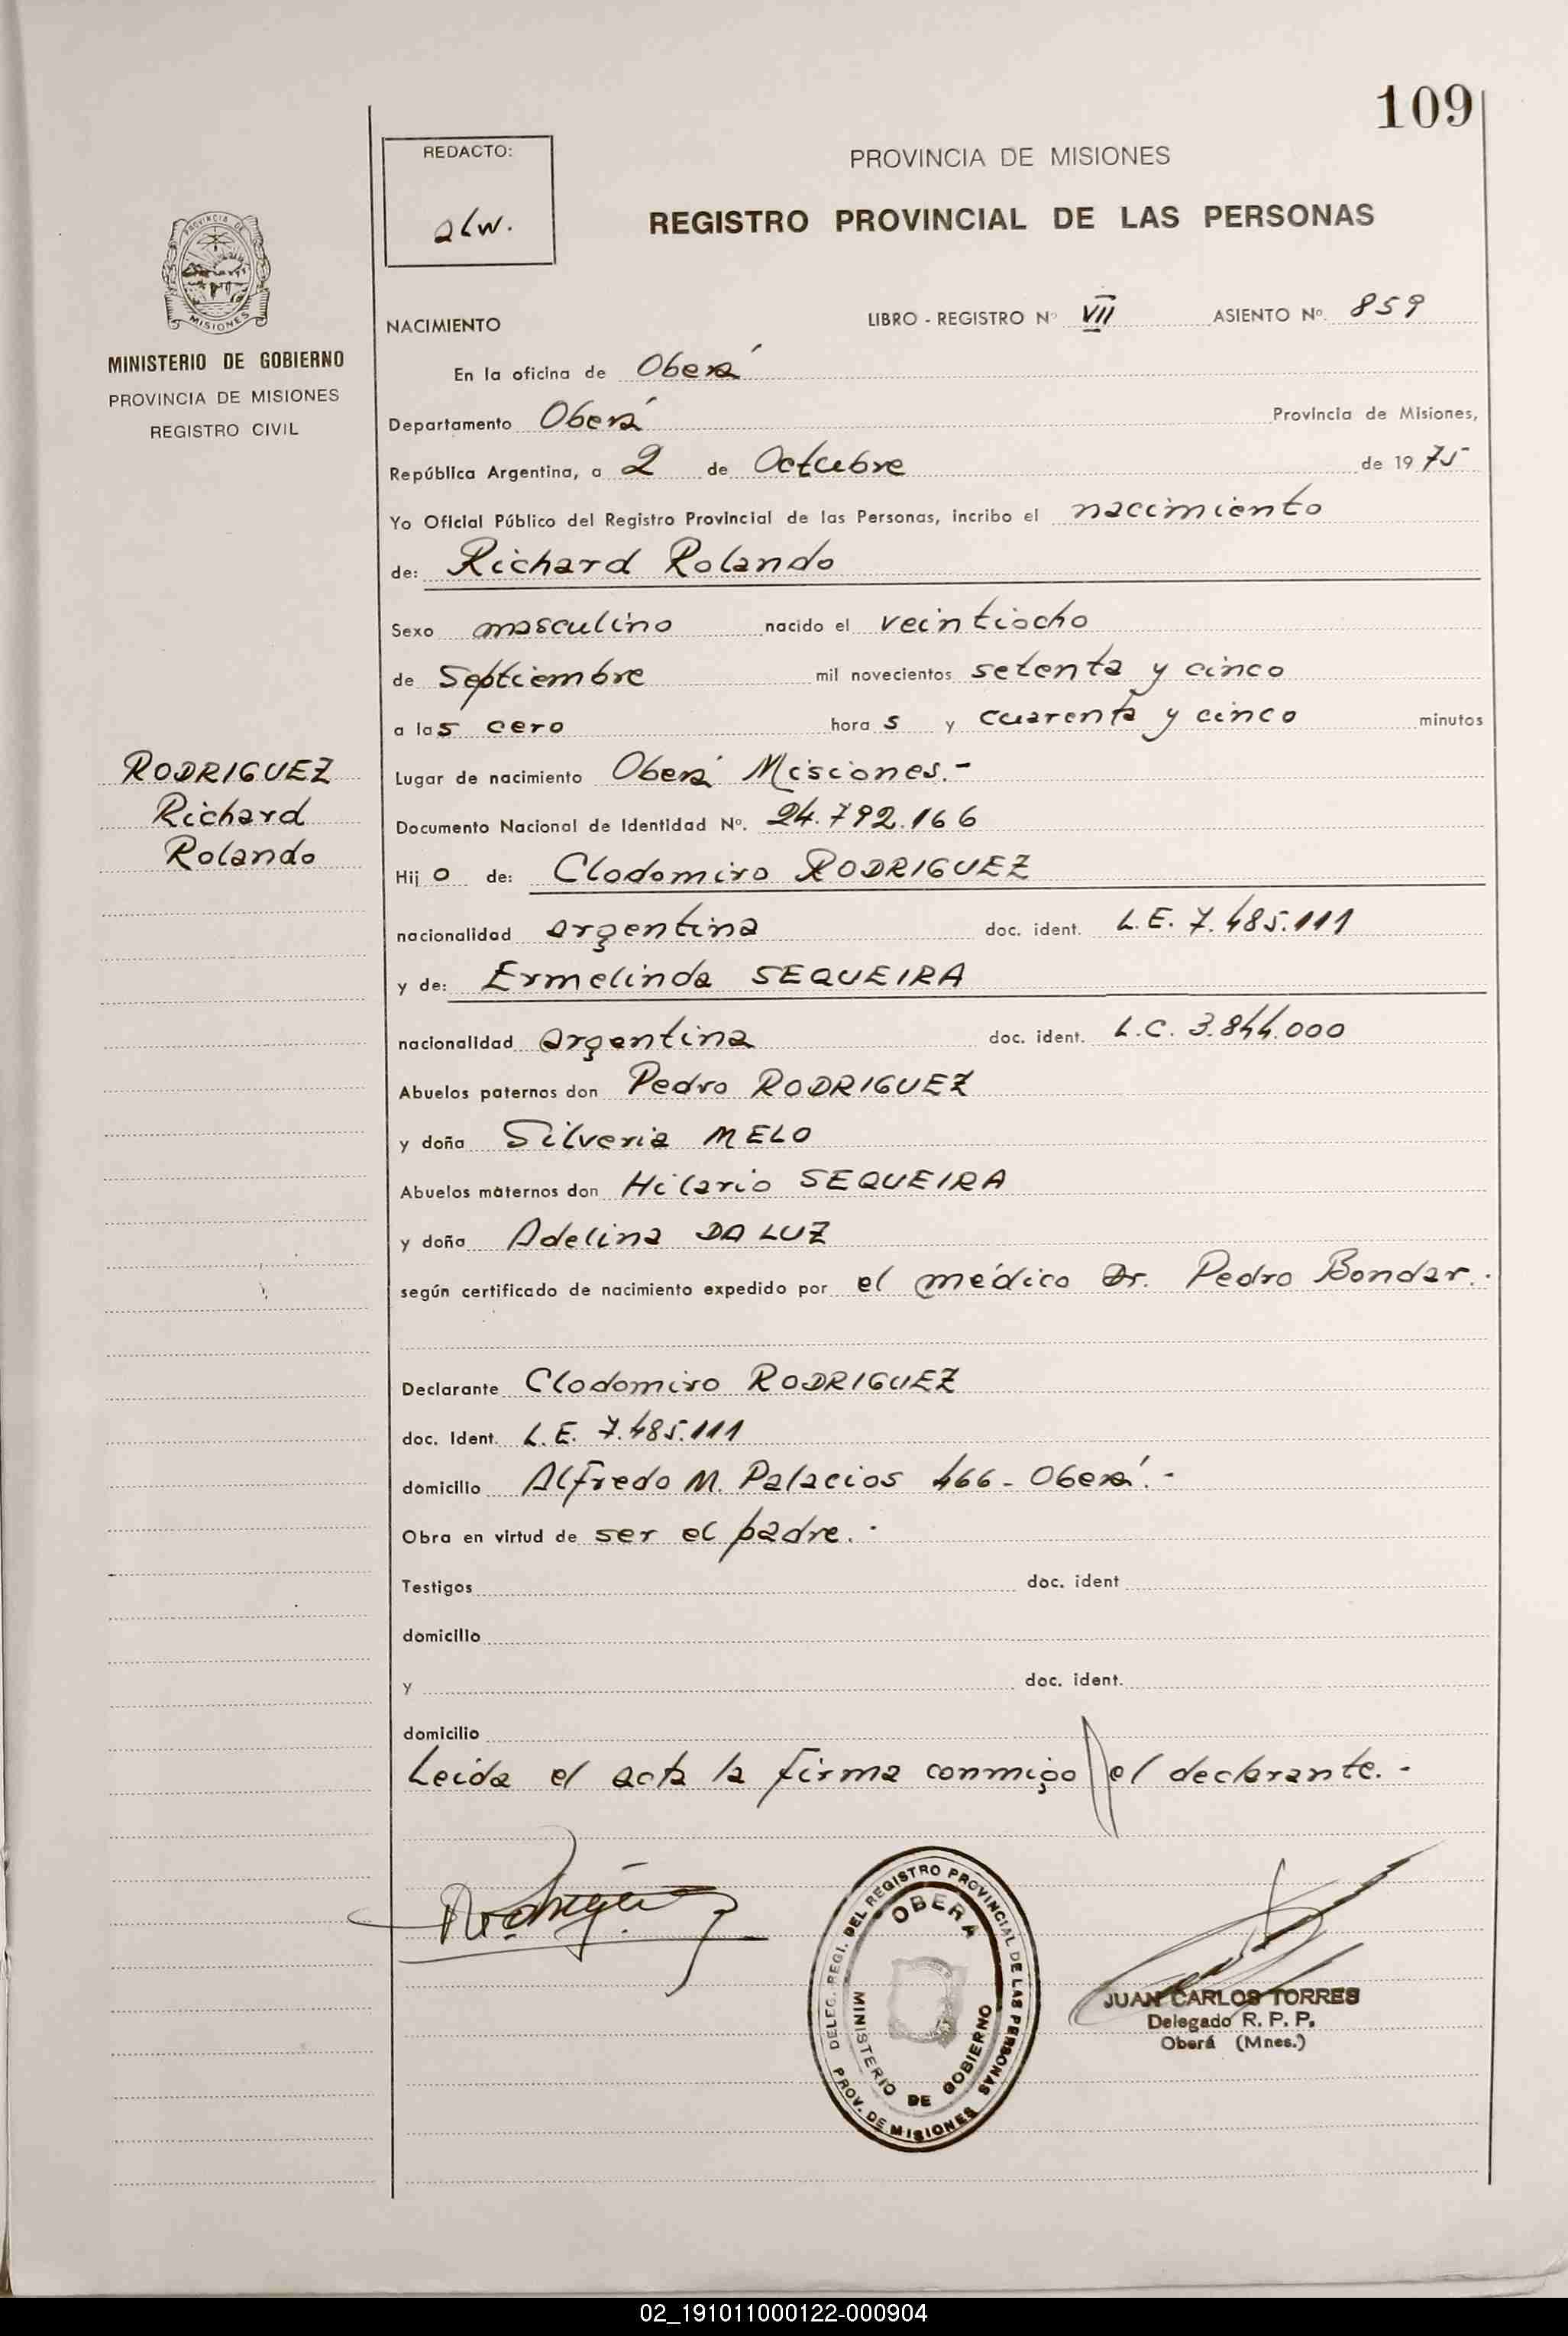 109
REDACTO:
alw.
PROVINCIA DE MISIONES
REGISTRO PROVINCIAL DE LAS PERSONAS
PROVINCIA DE
MISIONES
MINISTERIO DE GOBIERNO
PROVINCIA DE MISIONES
REGISTRO CIVIL
NACIMIENTO LIBRO - REGISTRO Nº VII ASIENTO Nº 859
En la oficina de Oberá
Departamento Oberá Provincia de Misiones,
República Argentina, a 2 de Octubre de 1975
Yo Oficial Público del Registro Provincial de las Personas, incribo el nacimiento
de: Richard Rolando
Sexo masculino nacido el veintiocho
de Septiembre mil novecientos setenta y cinco
a las cero horas y cuarenta y cinco minutos
RODRIGUEZ
Richard
Rolando
Lugar de nacimiento Oberá Misiones.-
Documento Nacional de Identidad Nº. 24.792.166
Hijo de: Clodomiro RODRIGUEZ
nacionalidad argentina doc. ident. L.E. 7.485.111
y de: Ermelinda SEQUEIRA
nacionalidad argentina doc. ident. L.C. 3.844.000
Abuelos paternos don Pedro RODRIGUEZ
y doña Silveria MELO
Abuelos maternos don Hilario SEQUEIRA
y doña Adelina DA LUZ
según certificado de nacimiento expedido por el médico Dr. Pedro Bondar.-
Declarante Clodomiro RODRIGUEZ
doc. Ident. L.E. 7.485.111
domicilio Alfredo M. Palacios 466 - Oberá.-
Obra en virtud de ser el padre.-
Testigos doc. ident
domicilio
y doc. ident.
domicilio
Leida el acta la firma conmigo el declarante.-
Rodriguez
DELEG. REGI. DEL REGISTRO PROVINCIAL DE LAS PERSONAS
OBERA
MINISTERIO DE GOBIERNO
PROV. DE MISIONES
JUAN CARLOS TORRES
Delegado R. P. P.
Oberá (Mnes.)
02_191011000122-000904